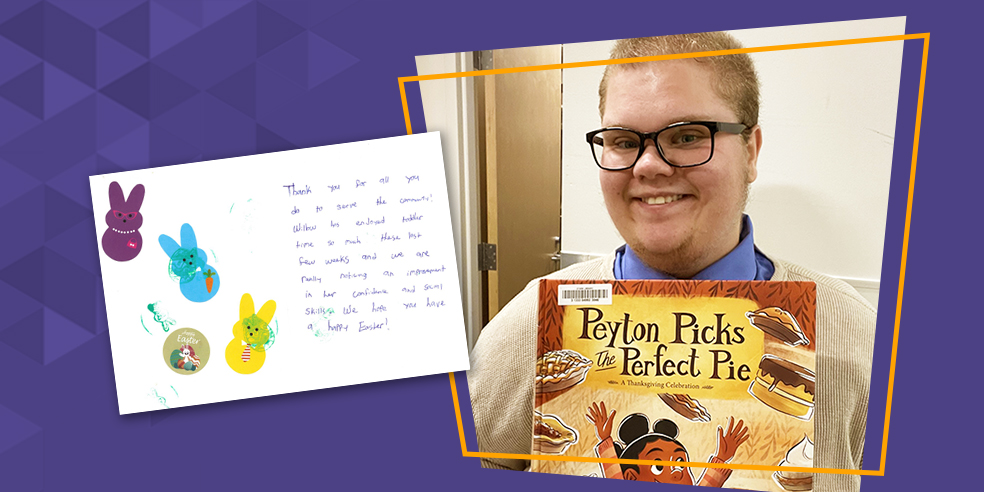 Thank you for all you
do to serve the community!
Willow has enjoyed toddler
time so much these last
few weeks and we are
really noticing an improvement
in her confidence and social
skills. We hope you have
a happy Easter!
Happy
Easter
Peyton Picks
The Perfect Pie
A Thanksgiving Celebration